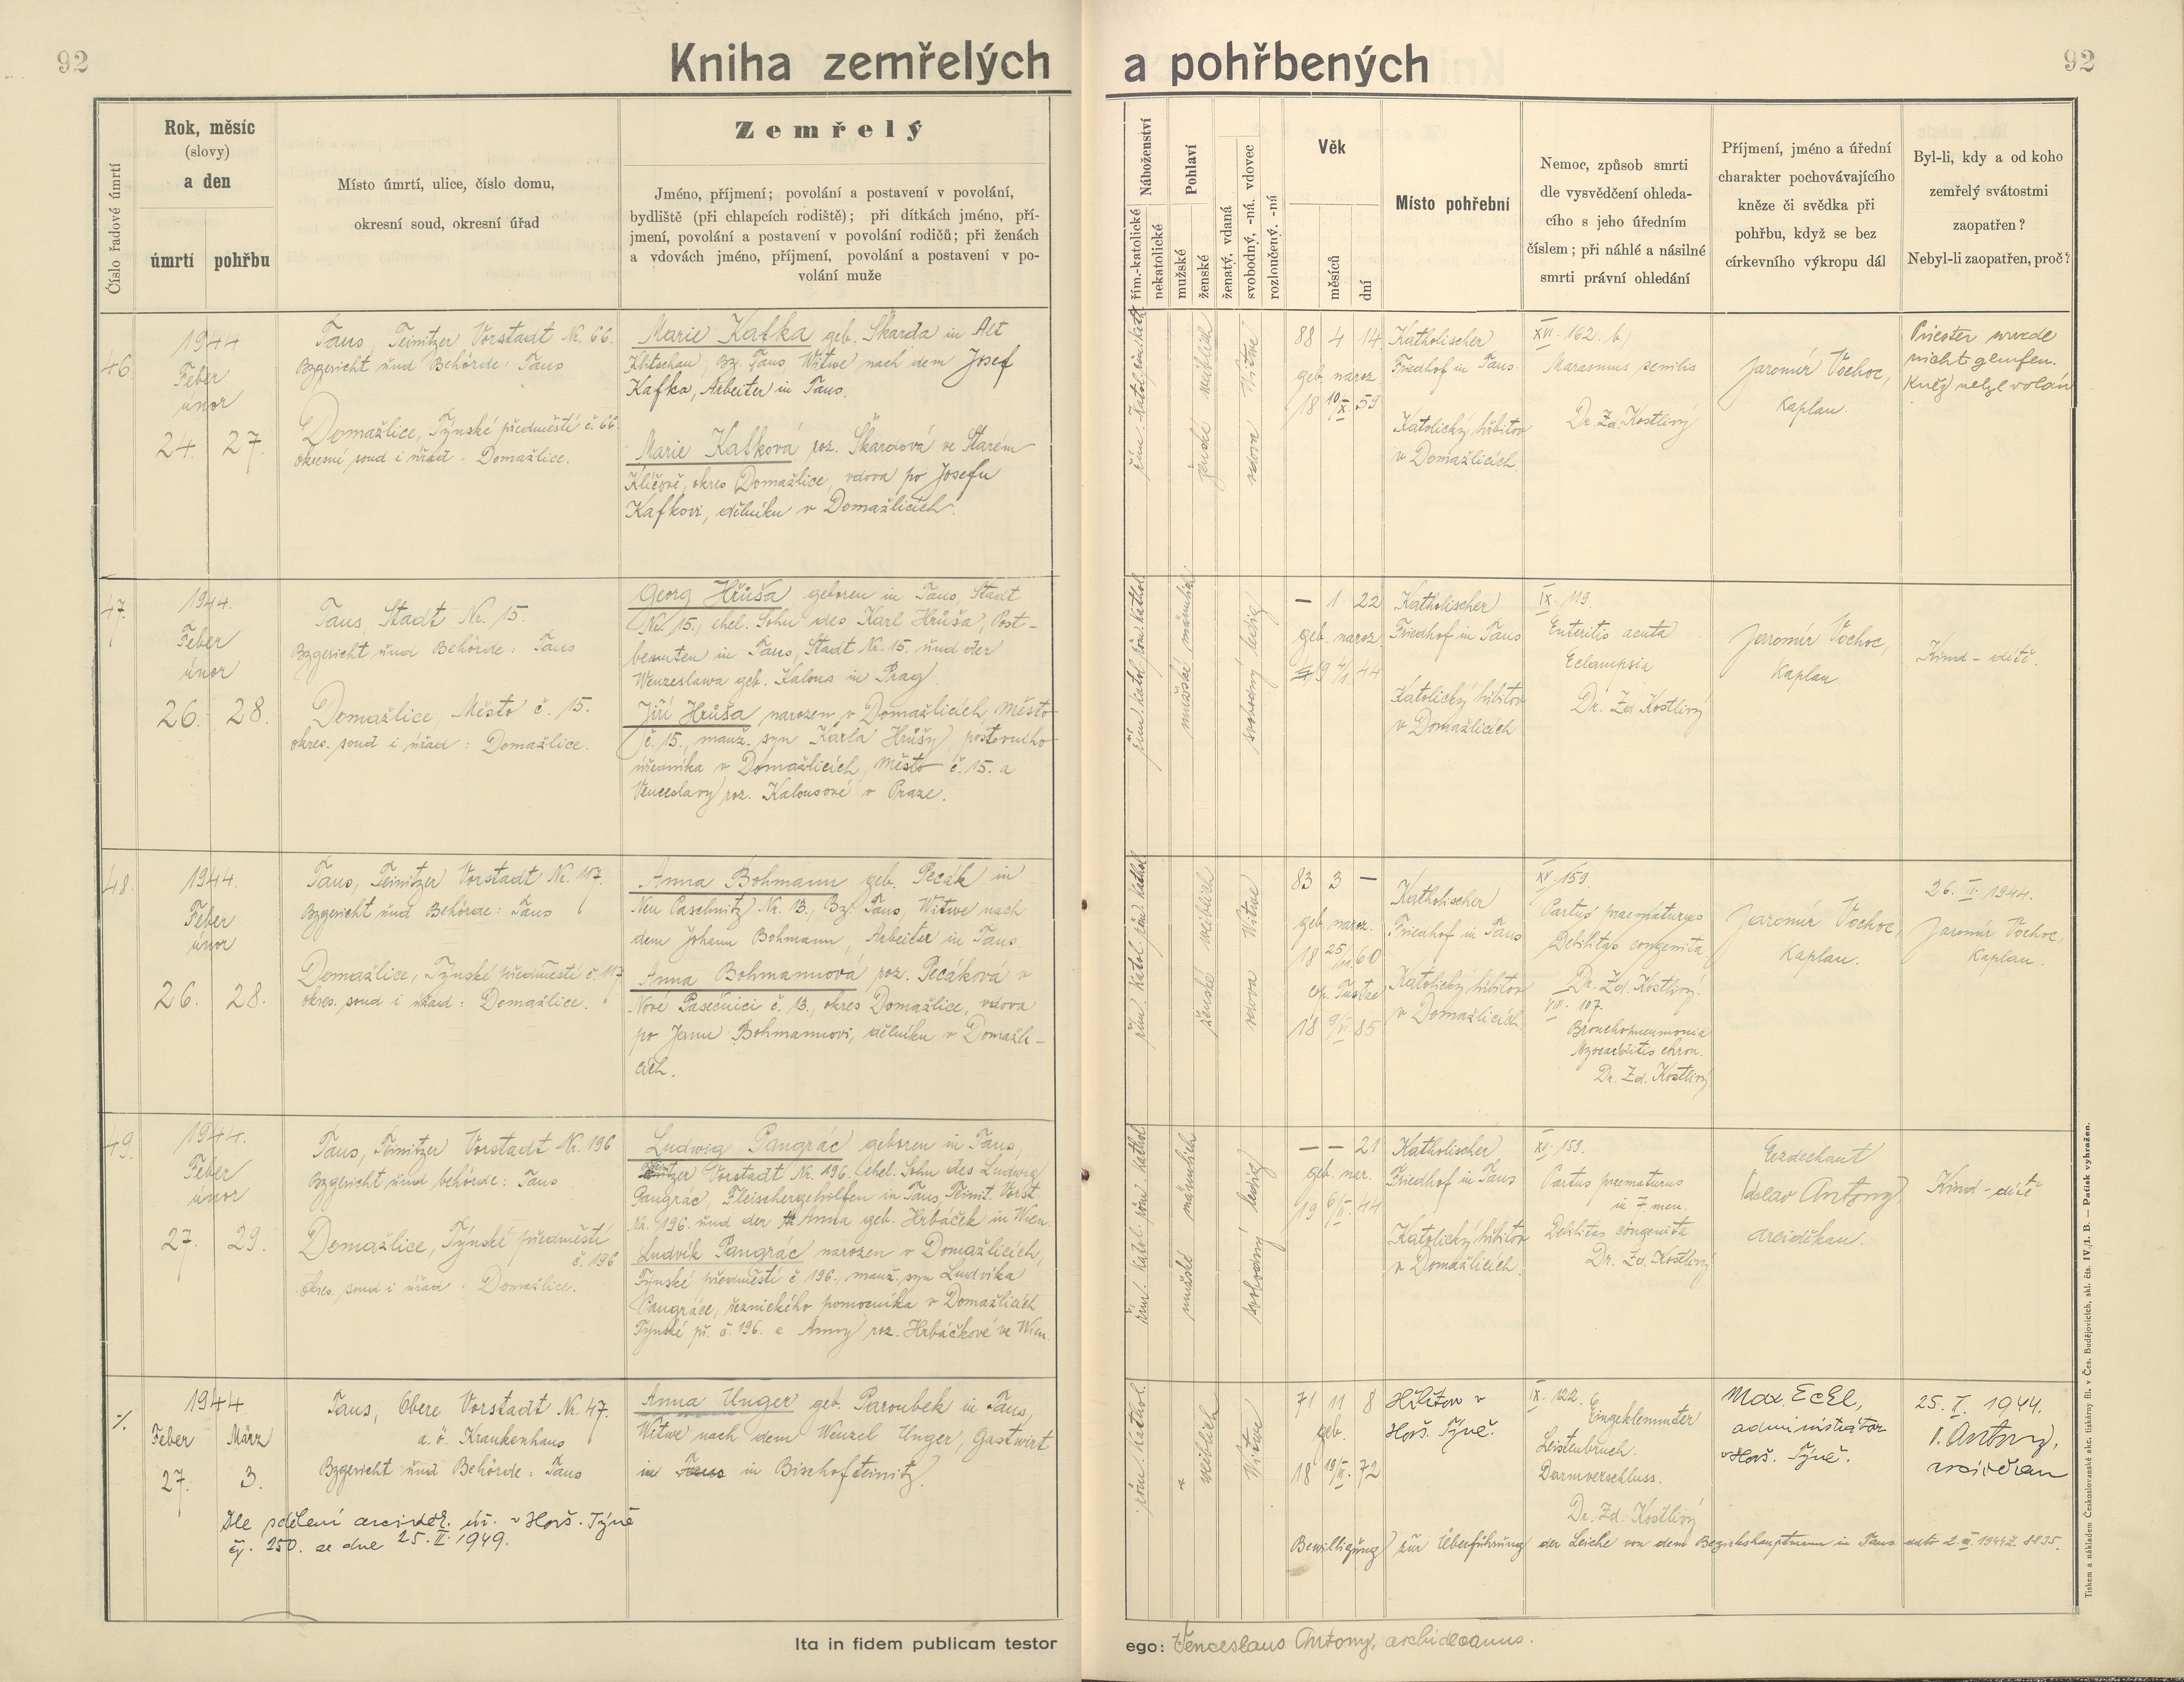 92
Kniha zemřelých a pohřbených
92
Číslo řadové úmrtí
Rok, měsíc
(slovy)
a den
úmrtí
pohřbu
Místo úmrtí, ulice, číslo domu,
okresní soud, okresní úřad
Zemřelý
Jméno, příjmení; povolání a postavení v povolání,
bydliště (při chlapcích rodiště); při dítkách jméno, pří-
jmení, povolání a postavení v povolání rodičů; při ženách
a vdovách jméno, příjmení, povolání a postavení v po-
volání muže
Náboženství
řím.-katolické
nekatolické
Pohlaví
mužské
ženské
ženatý, vdaná
svobodný, -ná, vdovec
rozloučený, -ná
Věk
měsíců
dní
Místo pohřební
Nemoc, způsob smrti
dle vysvědčení ohleda-
cího s jeho úředním
číslem; při náhlé a násilné
smrti právní ohledání
Příjmení, jméno a úřední
charakter pochovávajícího
kněze či svědka při
pohřbu, když se bez
církevního výkropu dál
Byl-li, kdy a od koho
zemřelý svátostmi
zaopatřen?
Nebyl-li zaopatřen, proč?
46.
1944
Feber
únor
24. 27.
Taus, Teinitzer Vorstadt Nr. 66.
Bzgericht und Behörde: Taus
Domažlice, Týnské předměstí č. 66.
okresní soud i úřad - Domažlice.
Marie Kafka geb. Škarda in Alt
Klitschau, Bz. Taus, Witwe nach dem Josef
Kafka, Arbeiter in Taus.
Marie Kafková roz. Škardová ve Starém
Klíčově, okres Domažlice, vdova po Josefu
Kafkovi, dělníku v Domažlicích.
ženské weiblich
vdova Witwe
88 4 14
geb. naroz.
18 10/X. 59
Katholischer
Friedhof in Taus.
Katolický hřbitov
v Domažlicích.
XVI. 162. b)
Marasmus senilis
Dr. Zd. Kostlivý
Jaromír Vochoc,
Kaplan.
Priester wurde
nicht gerufen.
Kněz nebyl volán
47.
1944.
Feber
únor
26. 28.
Taus, Stadt Nr. 15.
Bzgericht und Behörde: Taus
Domažlice, Město č. 15.
okres. soud i úřad: Domažlice.
Georg Hrůša geboren in Taus, Stadt
Nr. 15., ehel. Sohn des Karl Hrůša, Post-
beamten in Taus, Stadt Nr. 15. und der
Wenzeslawa geb. Kalous in Prag.
Jiří Hrůša narozen v Domažlicích, Město
č. 15., manž. syn Karla Hrůšy, poštovního
úředníka v Domažlicích, Město č. 15. a
Venceslavy roz. Kalousové v Praze.
řím. katol. röm. kathol.
mužské männlich
svobodný ledig
— 1 22
geb. naroz.
19 4/1. 44
Katholischer
Friedhof in Taus
Katolický hřbitov
v Domažlicích
IX. 119.
Enteritis acuta
Eclampsia
Dr. Zd. Kostlivý
Jaromír Vochoc,
Kaplan.
Kind - dítě.
48.
1944.
Feber
únor
26. 28.
Taus, Teinitzer Vorstadt Nr. 117.
Bzgericht und Behörde: Taus
Domažlice, Týnské předměstí č. 117.
okres. soud i úřad: Domažlice.
Anna Bohmann geb. Pecák in
Neu Paschnitz Nr. 13., Bz. Taus, Witwe nach
dem Johann Bohmann, Arbeiter in Taus.
Anna Bohmannová roz. Pecáková v
Nové Pasečnici č. 13., okres Domažlice, vdova
po Janu Bohmannovi, dělníku v Domažli-
cích.
řím. katol. röm. kathol.
ženské weiblich
vdova Witwe
83 3 —
geb. naroz.
18 25/11. 60
18 9/ 85
Katholischer
Friedhof in Taus
Katolický hřbitov
v Domažlicích.
XV. 159.
Partus praematurus
Debilitas congenita
Dr. Zd. Kostlivý.
VIII. 107.
Bronchopneumonia
Myocarditis chron.
Dr. Zd. Kostlivý
Jaromír Vochoc,
Kaplan.
26. II. 1944.
Jaromír Vochoc,
Kaplan.
49.
1944.
Feber
únor
27. 29.
Taus, Teinitzer Vorstadt Nr. 196
Bzgericht und behörde: Taus
Domažlice, Týnské předměstí
č. 196
okres. soud i úřad: Domažlice.
Ludwig Pangrác geboren in Taus,
Teinitzer Vorstadt Nr. 196. ehel. Sohn des Ludwig
Pangrác, Fleischergehilfen in Taus, Teinit. Vorst.
Nr. 196. und der Anna geb. Hrbáček in Wien.
Ludvík Pangrác narozen v Domažlicích,
Týnské předměstí č 196., manž. syn Ludvíka
Pangráce, řeznického pomocníka v Domažlicích
Týnské př. č. 196. a Anny roz. Hrbáčkové ve Wien.
řím. katol. röm. kathol.
mužské männlich
svobodný ledig
— — 21
geb. nar.
19 6/II. 44
Katholischer
Friedhof in Taus
Katolický hřbitov
v Domažlicích.
XV. 159.
Partus prematurus
in 7 men.
Debilitas congenita
Dr. Zd. Kostlivý
Erzdechant
Antony
arciděkan.
Kind - dítě
1944
Feber März
27. 3.
Taus, Obere Vorstadt Nr. 47.
a. ö. Krankenhaus
Bzgericht und Behörde: Taus
Dle sdělení arciděk. úř. v Horš. Týně
čj. 250. ze dne 25. II. 1949.
Anna Unger geb. Paroubek in Taus,
Witwe nach dem Wenzel Unger, Gastwirt
in Taus in Bischofteinitz.
röm. kathol.
weiblich
Witwe
71 11 8
geb.
18 19/III. 72
Hřbitov v
Horš. Týně.
IX. 122.
Eingeklemmter
Leistenbruch.
Darmverschluss.
Dr. Zd. Kostlivý
Max. Eckl,
administrátor
v Horš. Týně.
25. I. 1944.
V. Antony,
arciděkan
Bewilligung zur Überführung der Leiche von dem Bezirkshauptmann in Taus dato 2. III. 1944 Z. 8835.
Ita in fidem publicam testor ego: Venceslaus Antony, archidecanus.
Tiskem a nákladem Československé akc. tiskárny fil. v Čes. Budějovicích, skl. čís. IV./1. B. — Patisk vyhražen.